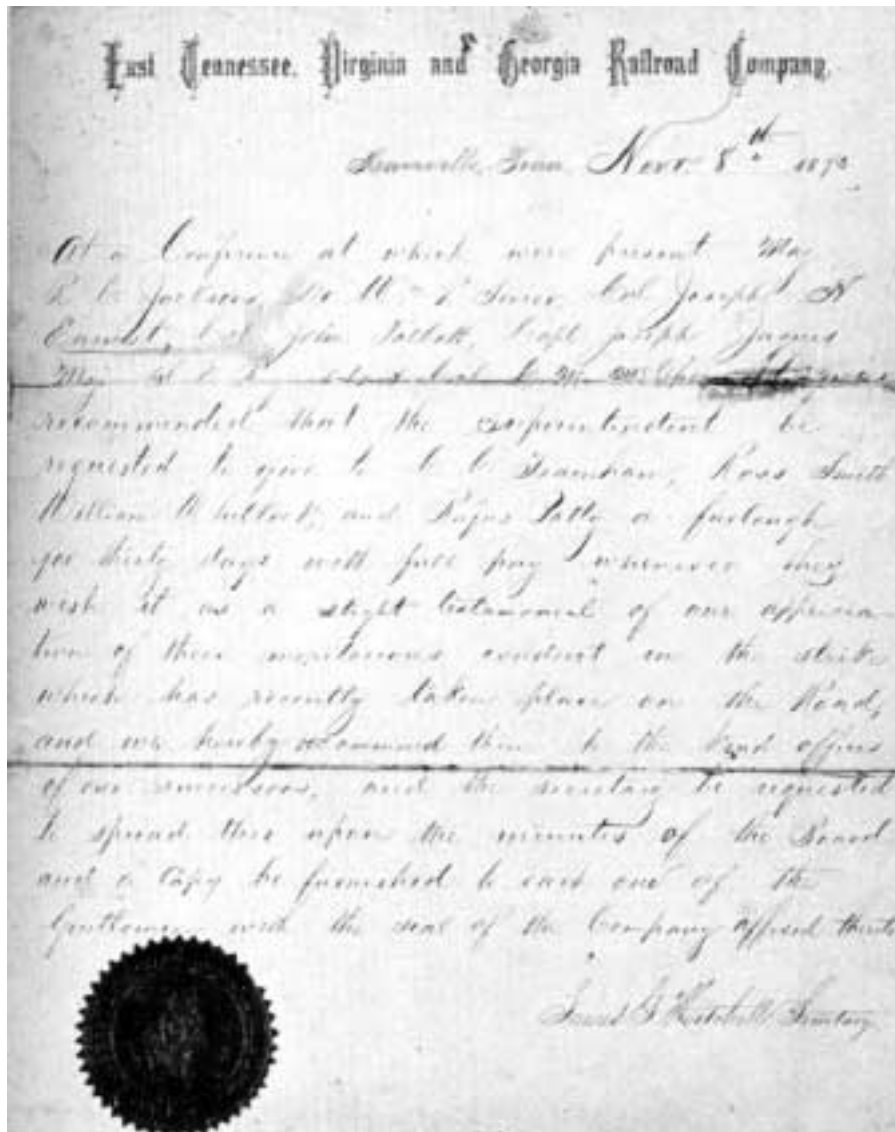 East Tennessee, Virginia and Georgia Railroad Company,
Tenn. Novr. 8th 187
At a Conference at which were present Maj
Jackson, Col Joseph
John Capt Joseph Jaques
Maj
recommended that the superintendent be
requested to give to Ross Smith
William and Rufus a furlough
for thirty days with full pay whenever they
wish it as a slight testamonial of our apprecia
tion of their meritorious conduct in the strike
which has recently taken place on the Road,
and we hereby recommend them to the kind offices
of our successors, and the secretary be requested
to spread this upon the minutes of the Board
and a Copy be furnished to each one of the
Gentlemen with the seal of the Company affixed thereto
James G Mitchell Secretary